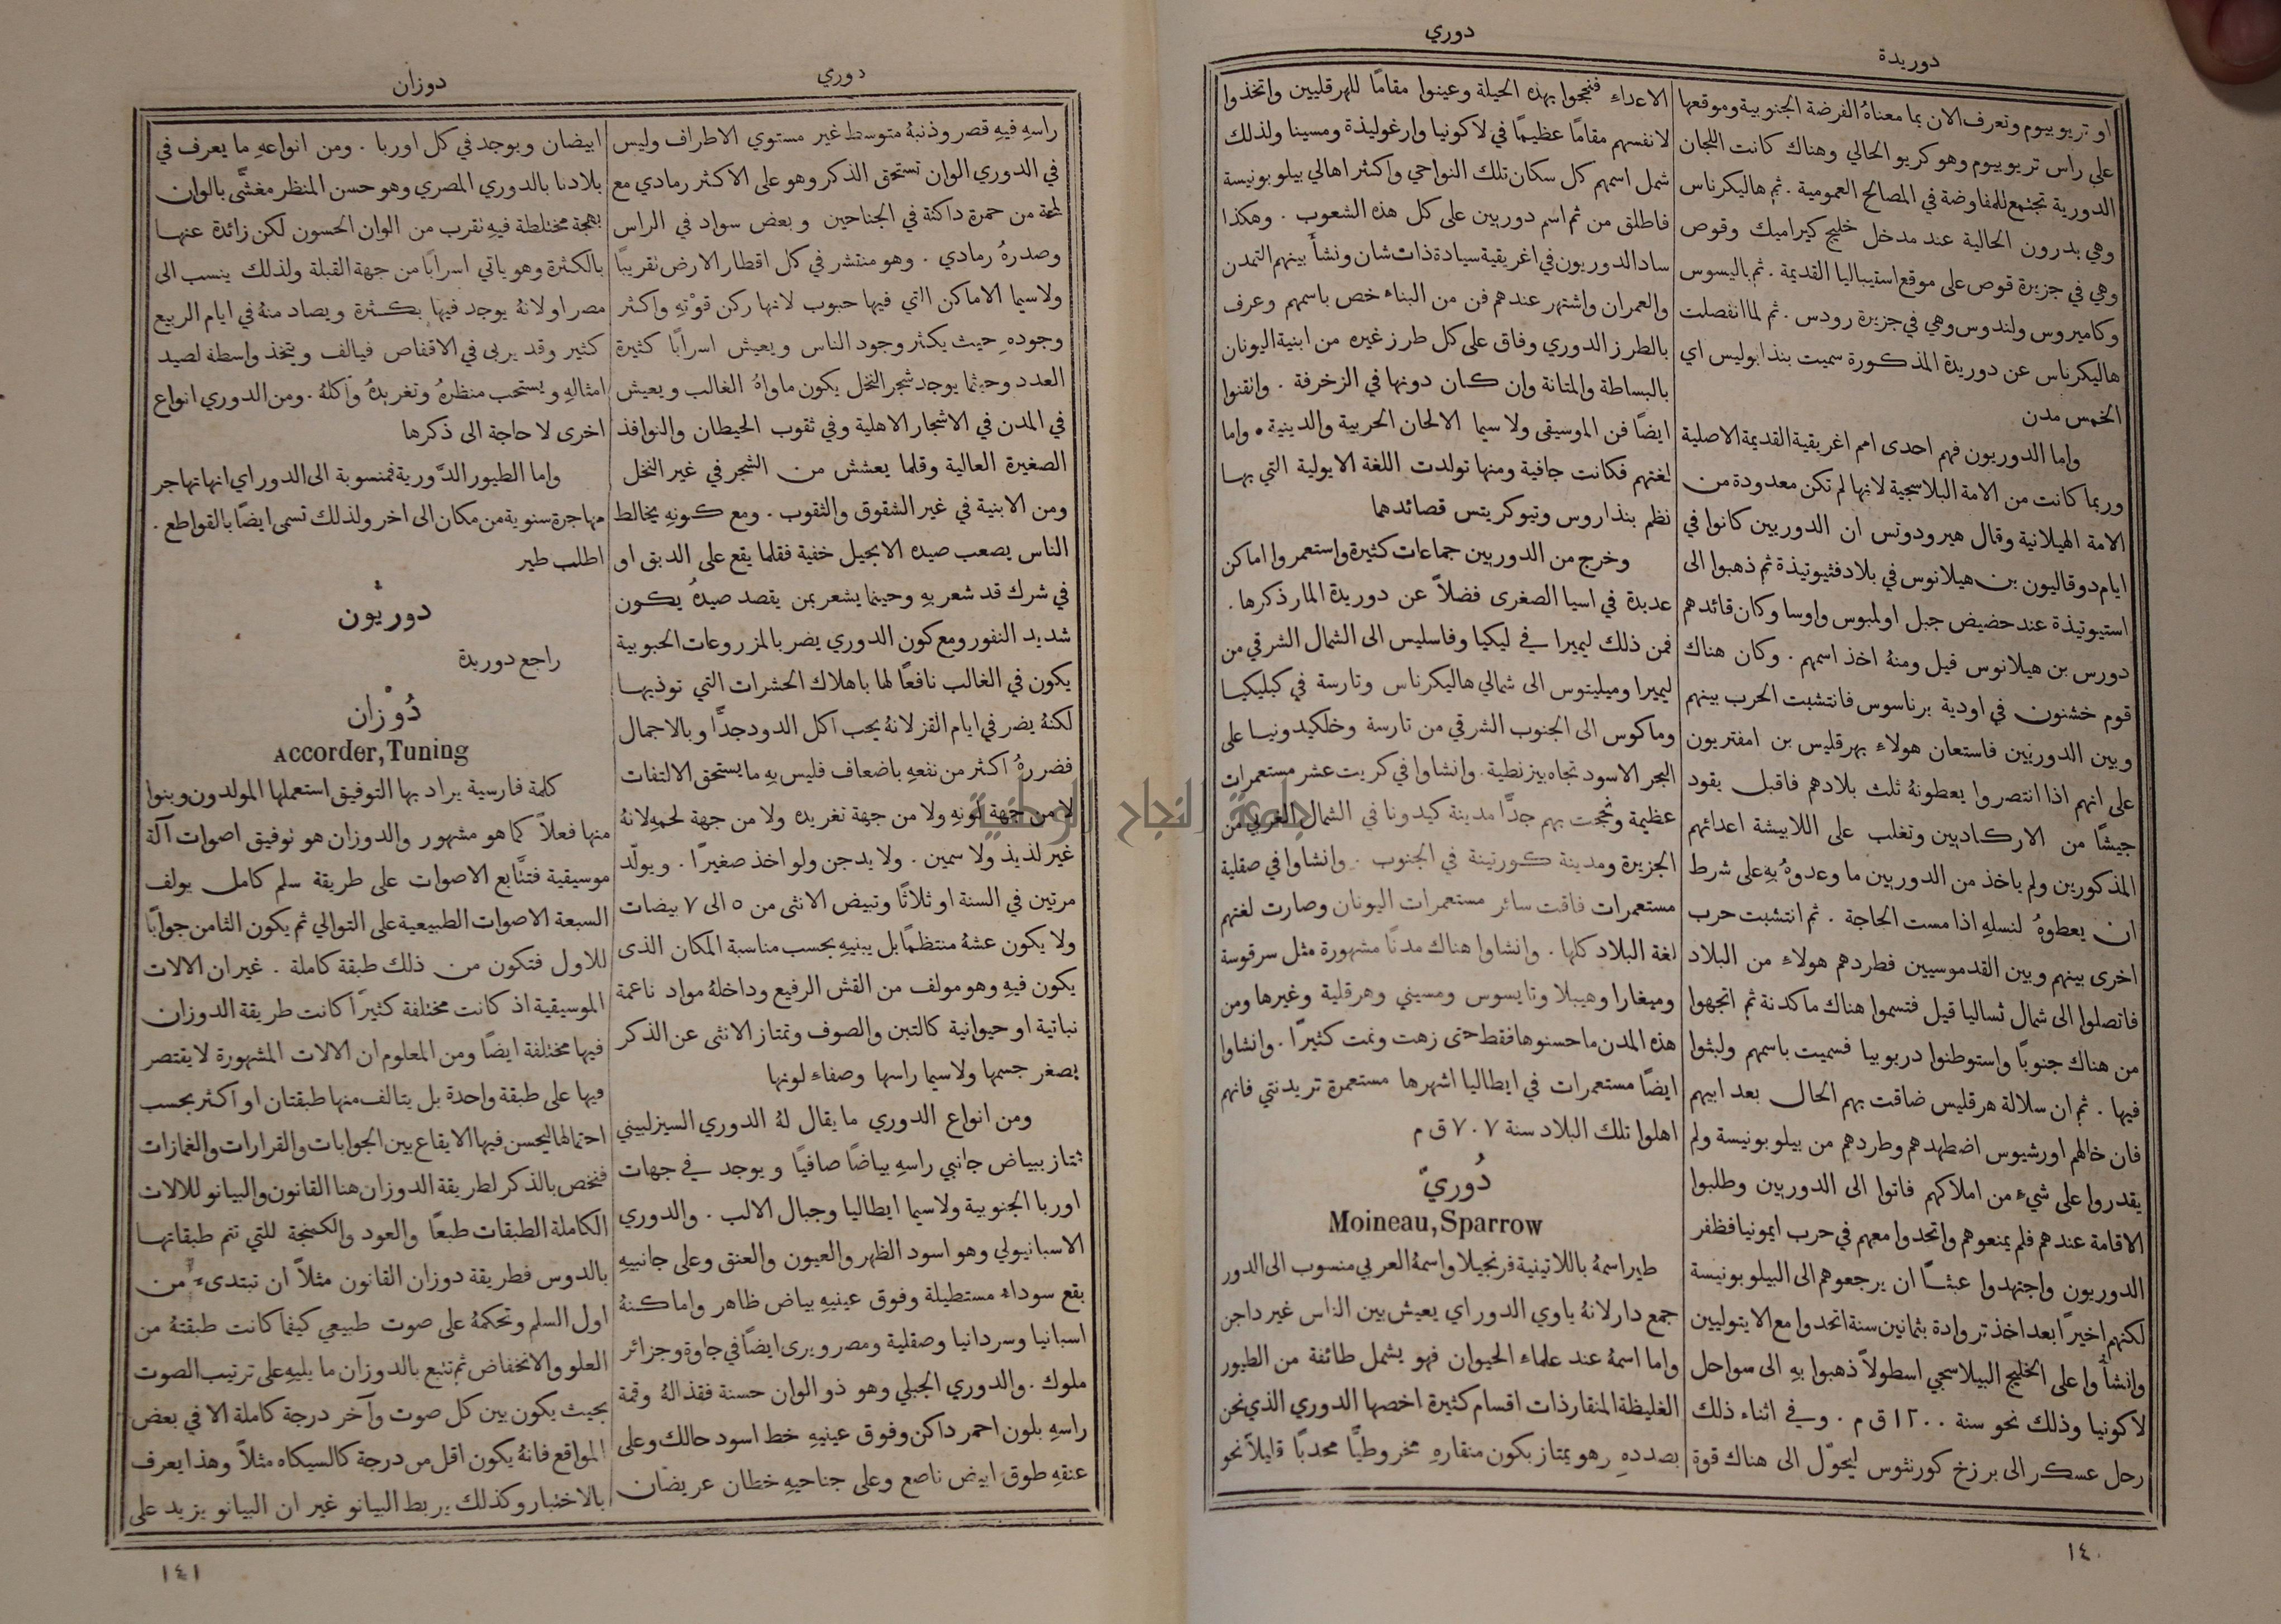 دوريدة
دوري
او تريوبيوم وتعرف الان بما معناهُ الفرضة الجنوبية وموقعها
على راس تريوبيوم وهو كريو الحالي وهناك كانت اللجان
الدورية تجتمع للمفاوضة في المصالح العمومية . ثم هاليكرناس
وهي بدرون الحالية عند مدخل خليج كيراميك وقوص
وهي في جزيرة قوص على موقع استيباليا القديمة . ثم ياليسوس
وكاميروس ولندوس وهي في جزيرة رودس . ثم لما انفصلت
هاليكرناس عن دوريدة المذكورة سميت بنذابوليس اي
الخمس مدن
واما الدوريون فهم احدى امم اغريقية القديمة الاصلية
وربما كانت من الامة البلاسجية لانها لم تكن معدودة من
الامة الهيلانية وقال هيرودوتس ان الدوريين كانوا في
ايام دوقاليون بن هيلانوس في بلاد فثيوتيذة ثم ذهبوا الى
استيوتيذة عند حضيض جبل اولمبوس واوسا وكان قائدهم
دورس بن هيلانوس قيل ومنهُ اخذ اسمهم . وكان هناك
قوم خشنون في اودية برناسوس فانتشبت الحرب بينهم
وبين الدوريين فاستعان هولاء بهرقليس بن امفتريون
على انهم اذا انتصروا يعطونهُ ثلث بلادهم فاقبل يقود
جيشًا من الاركاديين وتغلب على اللابيشة اعدائهم
المذكورين ولم ياخذ من الدوريين ما وعدوهُ بهِ على شرط
ان يعطوهُ لنسلهِ اذا مست الحاجة . ثم انتشبت حرب
اخرى بينهم وبين القدموسيين فطردهم هولاء من البلاد
فاتصلوا الى شمال ثساليا قيل فتسموا هناك ماكدنة ثم اتجهوا
من هناك جنوبًا واستوطنوا دريوبيا فسميت باسمهم ولبثوا
فيها . ثم ان سلالة هرقليس ضاقت بهم الحال بعد ابيهم
فان خالهم اورشيوس اضطهدهم وطردهم من بيلوبونيسة ولم
يقدروا على شيء من املاكهم فاتوا الى الدوريين وطلبوا
الاقامة عندهم فلم يمنعوهم واتحدوا معهم في حرب ايمونيا فظفر
الدوريون واجتهدوا عبثًا ان يرجعوهم الى البيلوبونيسة
لكنهم اخيرًا بعد اخذ تروادة بثمانين سنة اتحدوا مع الايتوليين
وانشأوا على الخليج البيلاسجي اسطولاً ذهبوا بهِ الى سواحل
لاكونيا وذلك نحو سنة ١٢٠٠ ق م . وفي اثناء ذلك
رحل عسكر الى برزخ كورنثوس ليحوّل الى هناك قوة
الاعداء فنجحوا بهذه الحيلة وعينوا مقامًا للهرقليين واتخذوا
لانفسهم مقامًا عظيمًا في لاكونيا وارغوليذة ومسينا ولذلك
شمل اسمهم كل سكان تلك النواحي واكثر اهالي بيلوبونيسة
فاطلق من ثم اسم دوريين على كل هذه الشعوب . وهكذا
ساد الدوريون في اغريقية سيادة ذات شان ونشأ بينهم التمدن
والعمران واشتهر عندهم فن من البناء خص باسمهم وعرف
بالطرز الدوري وفاق على كل طرز غيره من ابنية اليونان
بالبساطة والمتانة وان كان دونها في الزخرفة . واتقنوا
ايضًا فن الموسيقى ولا سيما الالحان الحربية والدينية . واما
لغتهم فكانت جافية ومنها تولدت اللغة الايولية التي بها
نظم بنذاروس وتيوكريتس قصائدهما
وخرج من الدوريين جماعات كثيرة واستعمروا اماكن
عديدة في اسيا الصغرى فضلاً عن دوريدة المار ذكرها .
فمن ذلك ليميرا في ليكيا وفاسليس الى الشمال الشرقي من
ليميرا وميليتوس الى شمالي هاليكرناس وتارسة في كيليكيا
وماكوس الى الجنوب الشرقي من تارسة وخلكيدونيا على
البحر الاسود تجاه بيزنطية . وانشاوا في كريت عشر مستعمرات
عظيمة ونجحت بهم جدًّا مدينة كيدونا في الشمال الغربي من
الجزيرة ومدينة كورتينة في الجنوب . وانشاوا في صقلية
مستعمرات فاقت سائر مستعمرات اليونان وصارت لغتهم
لغة البلاد كلها . وانشاوا هناك مدنًا مشهورة مثل سرقوسة
وميغارا وهيبلا وتايسوس ومسيني وهرقلية وغيرها ومن
هذه المدن ما حسنوها فقط حتى زهت ونمت كثيرًا . وانشاوا
ايضًا مستعمرات في ايطاليا اشهرها مستعمرة تريدنتي فانهم
اهلوا تلك البلاد سنة ٧٠٧ ق م
دُوريّ
Moineau, Sparrow
طير اسمهُ باللاتينية فرنجيلا واسمهُ العربي منسوب الى الدور
جمع دار لانهُ ياوي الدور اي يعيش بين الناس غير داجن
واما اسمهُ عند علماء الحيوان فهو يشمل طائفة من الطيور
الغليظة المنقار ذات اقسام كثيرة اخصها الدوري الذي نحن
بصدده وهو يمتاز بكون منقارهِ مخروطيًّا محدبًا قليلاً نحو
١٤٠
دوري
دوزان
راسهِ فيهِ قصر وذنبهُ متوسط غير مستوي الاطراف وليس
في الدوري الوان تستحق الذكر وهو على الاكثر رمادي مع
لمحة من حمرة داكنة في الجناحين وبعض سواد في الراس
وصدرهُ رمادي . وهو منتشر في كل اقطار الارض تقريبًا
ولا سيما الاماكن التي فيها حبوب لانها ركن قوْتهِ واكثر
وجوده حيث يكثر وجود الناس ويعيش اسرابًا كثيرة
العدد وحيثما يوجد شجر النخل يكون ماواهُ الغالب ويعيش
في المدن في الاشجار الاهلية وفي ثقوب الحيطان والنوافذ
الصغيرة العالية وقلما يعشش من الشجر في غير النخل
ومن الابنية في غير الشقوق والثقوب . ومع كونهِ يخالط
الناس يصعب صيده الا بحيل خفية فقلما يقع على الدبق او
في شرك قد شعر بهِ وحينما يشعر بمن يقصد صيدهُ يكون
شديد النفور ومع كون الدوري يضر بالمزروعات الحبوبية
يكون في الغالب نافعًا لها باهلاك الحشرات التي توذيها
لكنهُ يضر في ايام القز لانهُ يحب اكل الدود جدًّا وبالاجمال
فضررهُ اكثر من نفعهِ باضعاف فليس بهِ ما يستحق الالتفات
لا من جهة لونهِ ولا من جهة تغريده ولا من جهة لحمهِ لانهُ
غير لذيذ ولا سمين . ولا يدجن ولو اخذ صغيرًا . ويولّد
مرتين في السنة او ثلاثًا وتبيض الانثى من ٥ الى ٧ بيضات
ولا يكون عشهُ منتظمًا بل يبنيهِ بحسب مناسبة المكان الذي
يكون فيهِ وهو مولف من القش الرفيع وداخلهُ مواد ناعمة
نباتية او حيوانية كالتبن والصوف وتمتاز الانثى عن الذكر
بصغر جسمها ولا سيما راسها وصفاء لونها
ومن انواع الدوري ما يقال لهُ الدوري السيزلبيني
يمتاز ببياض جانبي راسهِ بياضًا صافيًا ويوجد في جهات
اوربا الجنوبية ولا سيما ايطاليا وجبال الالب . والدوري
الاسبانيولي وهو اسود الظهر والعيون والعنق وعلى جانبيهِ
بقع سوداء مستطيلة وفوق عينيهِ بياض ظاهر واماكنهُ
اسبانيا وسردانيا وصقلية ومصر ويرى ايضًا في جاوة وجزائر
ملوك . والدوري الجبلي وهو ذو الوان حسنة فقذالهُ وقمة
راسهِ بلون احمر داكن وفوق عينيهِ خط اسود حالك وعلى
عنقهِ طوق ابيض ناصع وعلى جناحيهِ خطان عريضان
ابيضان ويوجد في كل اوربا . ومن انواعهِ ما يعرف في
بلادنا بالدوري المصري وهو حسن المنظر مغشّى بالوان
بهجة مختلطة فيهِ تقرب من الوان الحسون لكن زائدة عنها
بالكثرة وهو ياتي اسرابًا من جهة القبلة ولذلك ينسب الى
مصر او لانهُ يوجد فيها بكثرة ويصاد منهُ في ايام الربيع
كثير وقد يربى في الاقفاص فيالف ويتخذ واسطة لصيد
امثالهِ ويستحب منظرهُ وتغريدهُ واكلهُ . ومن الدوري انواع
اخرى لا حاجة الى ذكرها
واما الطيور الدَّورية فمنسوبة الى الدور اي انها تهاجر
مهاجرة سنوية من مكان الى اخر ولذلك تسمى ايضًا بالقواطع .
اطلب طير
دوريُون
راجع دوريدة
دُوْزان
Accorder, Tuning
كلمة فارسية يراد بها التوفيق استعملها المولدون وبنوا
منها فعلاً كما هو مشهور والدوزان هو توفيق اصوات آلة
موسيقية فتتابع الاصوات على طريقة سلم كامل يولف
السبعة الاصوات الطبيعية على التوالي ثم يكون الثامن جوابًا
للاول فتكون من ذلك طبقة كاملة . غير ان الالات
الموسيقية اذ كانت مختلفة كثيرًا كانت طريقة الدوزان
فيها مختلفة ايضًا ومن المعلوم ان الالات المشهورة لا يقتصر
فيها على طبقة واحدة بل يتالف منها طبقتان او اكثر بحسب
احتمالها ليحسن فيها الايقاع بين الجوابات والقرارات والغمازات
فنخص بالذكر لطريقة الدوزان هنا القانون والبيانو للالات
الكاملة الطبقات طبعًا والعود والكمنجة للتي تتم طبقاتها
بالدوس فطريقة دوزان القانون مثلاً ان تبتدىء من
اول السلم وتحكمهُ على صوت طبيعي كيفما كانت طبقتهُ من
العلو والانخفاض ثم تتبع بالدوزان ما يليهِ على ترتيب الصوت
بحيث يكون بين كل صوت وآخر درجة كاملة الا في بعض
المواقع فانهُ يكون اقل من درجة كالسيكاه مثلاً وهذا يعرف
بالاختبار وكذلك يربط البيانو غير ان البيانو يزيد على
١٤١
جامعة النجاح الوطنية